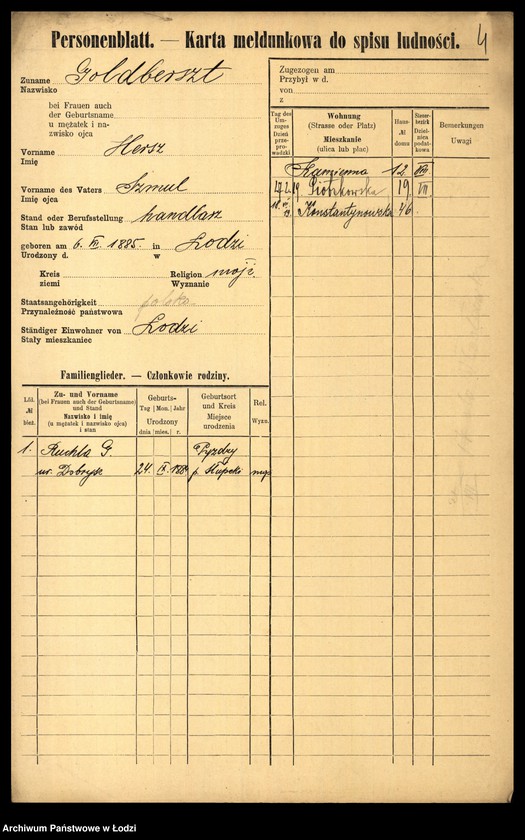 4
Personenblatt. — Karta meldunkowa do spisu ludności.
Zuname Goldberszt
Nazwisko
bei Frauen auch
der Geburtsname
u mężatek i na-
zwisko ojca
Vorname Hersz
Imię
Vorname des Vaters Szmul
Imię ojca
Stand oder Berufsstellung handlarz
Stan lub zawód
geboren am 6. VI. 1885. in Łodzi
Urodzony d. w
Kreis Religion mojż.
ziemi Wyznanie
Staatsangehörigkeit polska
Przynależność państwowa
Ständiger Einwohner von Łodzi
Stały mieszkaniec
Familienglieder. — Członkowie rodziny.
Lfd.
№
bież.
Zu- und Vorname
(bei Frauen auch der Geburtsname)
und Stand
Nazwisko i imię
(u mężatek i nazwisko ojca)
i stan
Geburts-
Tag Mon. Jahr
Urodzony
dnia mies. r.
Geburtsort
und Kreis
Miejsce
urodzenia
Rel.
Wyzn.
1. Ruchla G. Pyzdry
ur. Dobrysz 24. p. Słupcki
Zugezogen am
Przybył w d.
von
z
Tag des
Um-
zuges
Dzień
prze-
prowadzki
Wohnung
(Strasse oder Platz)
Mieszkanie
(ulica lub plac)
Haus-
№
domu
Steuer-
bezirk
Dziel-
nica
podat-
kowa
Bemerkungen
Uwagi
Kamienna 12 VIII
Piotrkowska 19 VII
Konstantynowska 46
Archiwum Państwowe w Łodzi